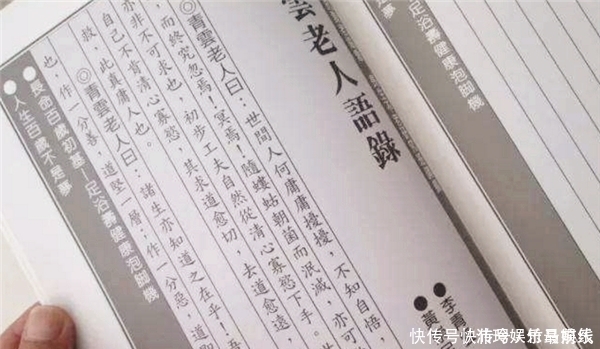 足浴壽健康泡腳機
雲老人語錄
●李青
●黃
◎青雲老人曰：世間人何庸庸擾擾，不知自悟，
，而終究忽焉！冥焉！隨螻蛄朝菌而泯滅，亦可
亦非不可求也，初步工夫自然從清心寡慾下手。
自己不肯清心寡慾，其求道愈切，去道愈遠，
救，此真庸人也。
◎青雲老人曰：諸生亦知道之在乎！
也，作一分善，道堅一層；作一分惡，道
●長命百歲初基—足浴壽健康泡腳機
●人生百歲不是夢
快传号